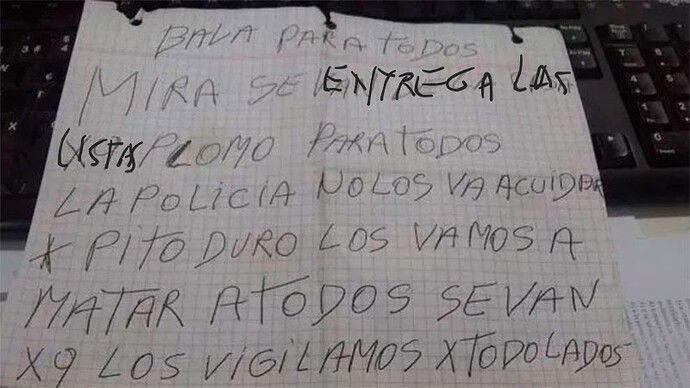 BALA PARA TODOS
MIRA SE ENTREGA LAS
LISTAS PLOMO PARA TODOS
LA POLICIA NO LOS VA ACUIDAR
X PITO DURO LOS VAMOS A
MATAR ATODOS SEVAN
X9 LOS VIGILAMOS XTODOLADOS